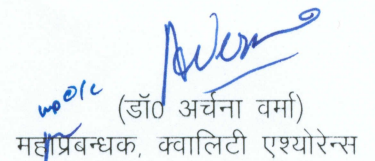 (डॉ0 अर्चना वर्मा)
महाप्रबन्धक, क्वालिटी एश्योरेन्स